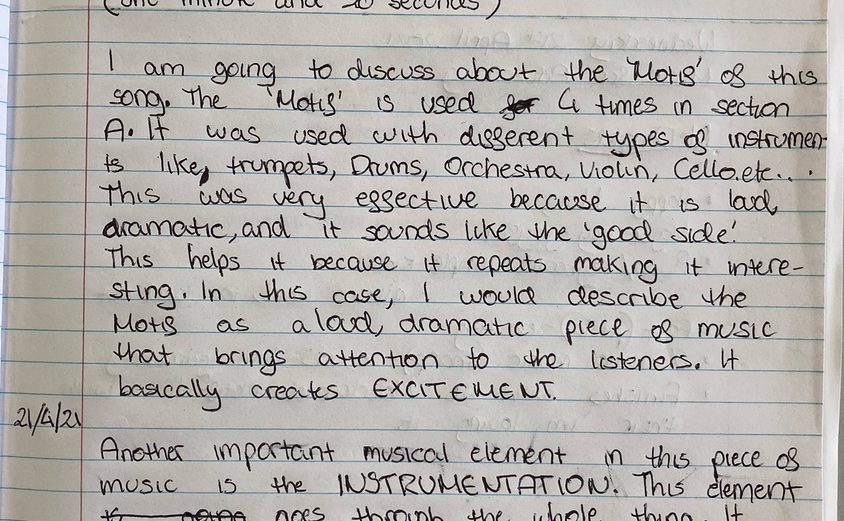 (one minute and 30 seconds)
I am going to discuss about the 'Motif' of this
song. The 'Motif' is used for 4 times in section
A. It was used with different types of instrumen-
ts like, trumpets, Drums, Orchestra, Violin, Cello.etc...
This was very effective because it is loud,
dramatic, and it sounds like the 'good side'.
This helps it because it repeats making it intere-
sting. In this case, I would describe the
Motif as a loud, dramatic piece of music
that brings attention to the listeners. It
basically creates EXCITEMENT.
21/4/21
Another important musical element in this piece of
music is the INSTRUMENTATION. This element
goes through the whole thing. It